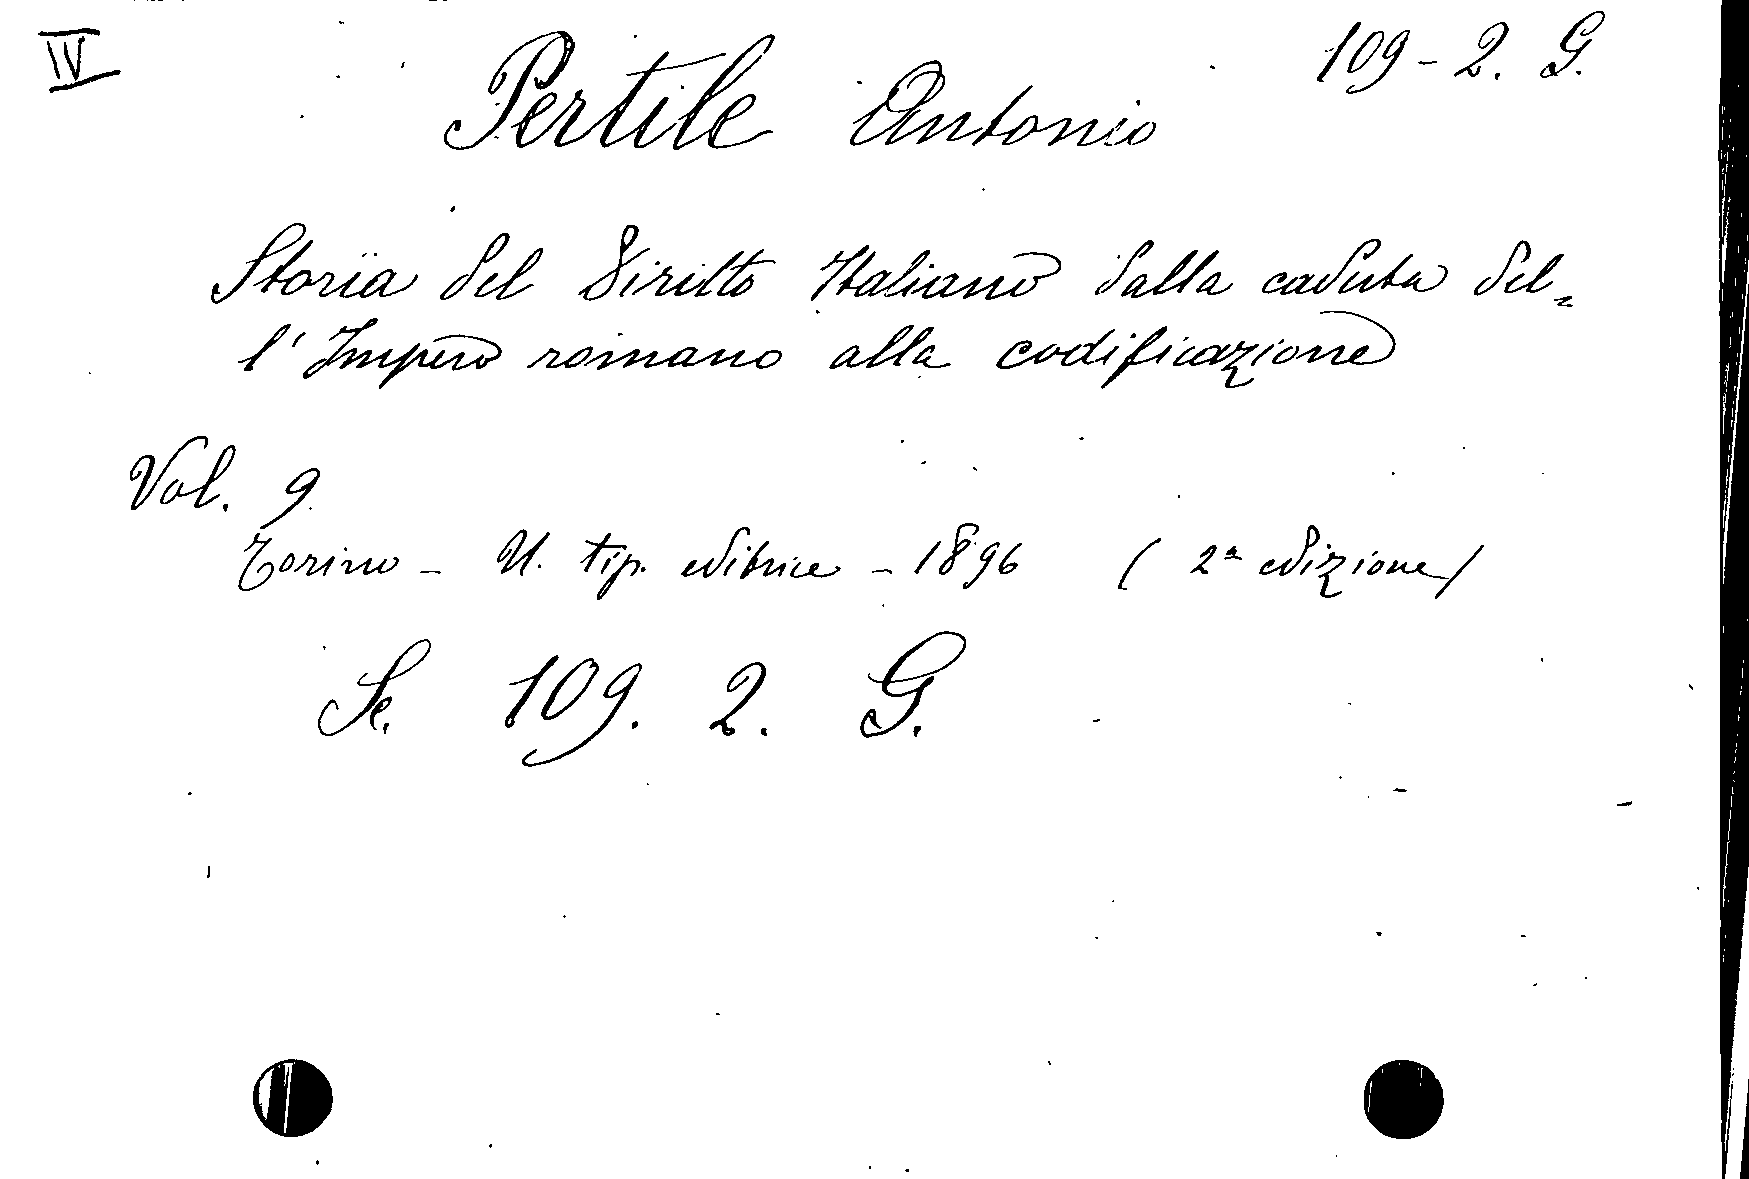 IV
109 - 2. G.
Pertile Antonio
Storia del Diritto Italiano dalla caduta del=
l'Impero romano alla codificazione
Vol. 9
Torino - U. tip. editrice - 1896 ( 2ª edizione )
Se. 109. 2. G.